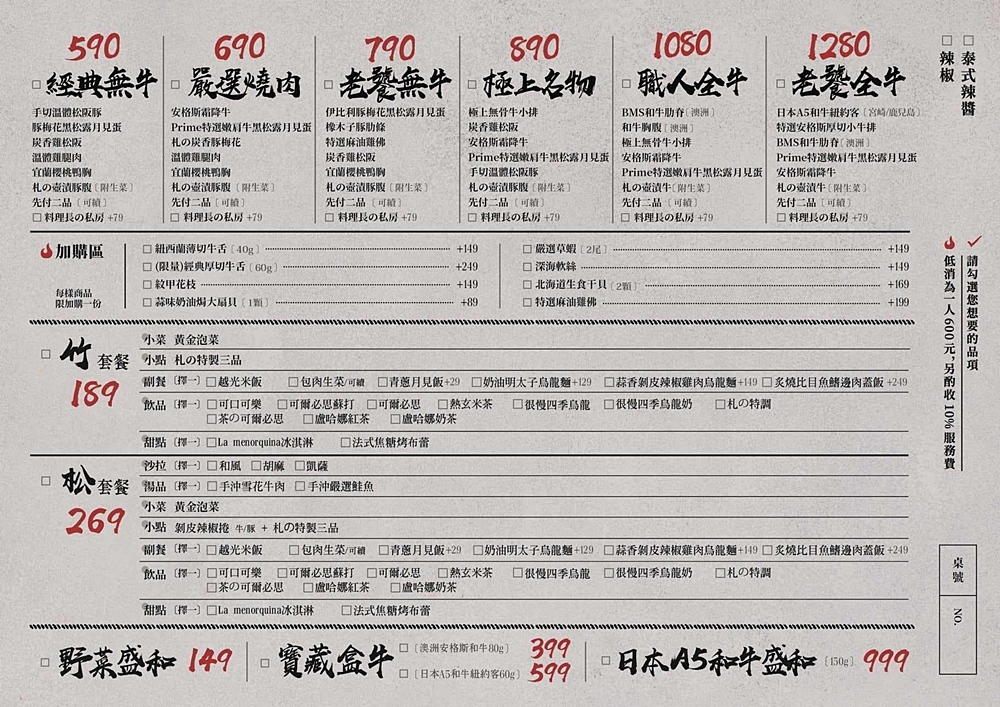 590
□ 經典無牛
手切溫體松阪豚
豚梅花黑松露月見蛋
炭香雞松阪
溫體雞腿肉
宜蘭櫻桃鴨胸
札の壺漬豚腹〔附生菜〕
先付二品〔可續〕
□ 料理長の私房 +79
690
□ 嚴選燒肉
安格斯霜降牛
Prime特選嫩肩牛黑松露月見蛋
札の炭香豚梅花
溫體雞腿肉
宜蘭櫻桃鴨胸
札の壺漬豚腹〔附生菜〕
先付二品〔可續〕
□ 料理長の私房 +79
790
□ 老饕無牛
伊比利豚梅花黑松露月見蛋
橡木子豚肋條
特選麻油雞佛
炭香雞松阪
宜蘭櫻桃鴨胸
札の壺漬豚腹〔附生菜〕
先付二品〔可續〕
□ 料理長の私房 +79
890
□ 極上名物
極上無骨牛小排
炭香雞松阪
安格斯霜降牛
Prime特選嫩肩牛黑松露月見蛋
手切溫體松阪豚
札の壺漬豚腹〔附生菜〕
先付二品〔可續〕
□ 料理長の私房 +79
1080
□ 職人全牛
BMS和牛肋脊〔澳洲〕
和牛胸腹〔澳洲〕
極上無骨牛小排
安格斯霜降牛
Prime特選嫩肩牛黑松露月見蛋
札の壺漬牛〔附生菜〕
先付二品〔可續〕
□ 料理長の私房 +79
1280
□ 老饕全牛
日本A5和牛紐約客〔宮崎/鹿兒島〕
特選安格斯厚切小牛排
BMS和牛肋脊〔澳洲〕
Prime特選嫩肩牛黑松露月見蛋
安格斯霜降牛
札の壺漬牛〔附生菜〕
先付二品〔可續〕
□ 料理長の私房 +79
□ 泰式辣醬
□ 辣椒
加購區
每樣商品
限加購一份
□ 紐西蘭薄切牛舌〔40g〕 +149
□ (限量)經典厚切牛舌〔60g〕 +249
□ 紋甲花枝 +149
□ 蒜味奶油焗大扇貝〔1顆〕 +89
□ 嚴選草蝦〔2尾〕 +149
□ 深海軟絲 +149
□ 北海道生食干貝〔2顆〕 +169
□ 特選麻油雞佛 +199
請勾選您想要的品項
低消為一人600元,另酌收10%服務費
□ 竹 套餐
189
小菜 黃金泡菜
小點 札の特製三品
副餐〔擇一〕□越光米飯 □包肉生菜/可續 □青蔥月見飯+29 □奶油明太子烏龍麵+129 □蒜香剝皮辣椒雞肉烏龍麵+149 □炙燒比目魚鰭邊肉蓋飯 +249
飲品〔擇一〕□可口可樂 □可爾必思蘇打 □可爾必思 □熱玄米茶 □很慢四季烏龍 □很慢四季烏龍奶 □札の特調
□茶の可爾必思 □盧哈娜紅茶 □盧哈娜奶茶
甜點〔擇一〕□La menorquina冰淇淋 □法式焦糖烤布蕾
□ 松 套餐
269
沙拉〔擇一〕□和風 □胡麻 □凱薩
湯品〔擇一〕□手沖雪花牛肉 □手沖嚴選鮭魚
小菜 黃金泡菜
小點 剝皮辣椒捲 牛/豚 + 札の特製三品
副餐〔擇一〕□越光米飯 □包肉生菜/可續 □青蔥月見飯+29 □奶油明太子烏龍麵+129 □蒜香剝皮辣椒雞肉烏龍麵+149 □炙燒比目魚鰭邊肉蓋飯 +249
飲品〔擇一〕□可口可樂 □可爾必思蘇打 □可爾必思 □熱玄米茶 □很慢四季烏龍 □很慢四季烏龍奶 □札の特調
□茶の可爾必思 □盧哈娜紅茶 □盧哈娜奶茶
甜點〔擇一〕□La menorquina冰淇淋 □法式焦糖烤布蕾
桌號
NO.
□ 野菜盛和 149
□ 寶藏盒牛
□〔澳洲安格斯和牛80g〕 399
□〔日本A5和牛紐約客60g〕 599
□ 日本A5和牛盛和〔150g〕 999